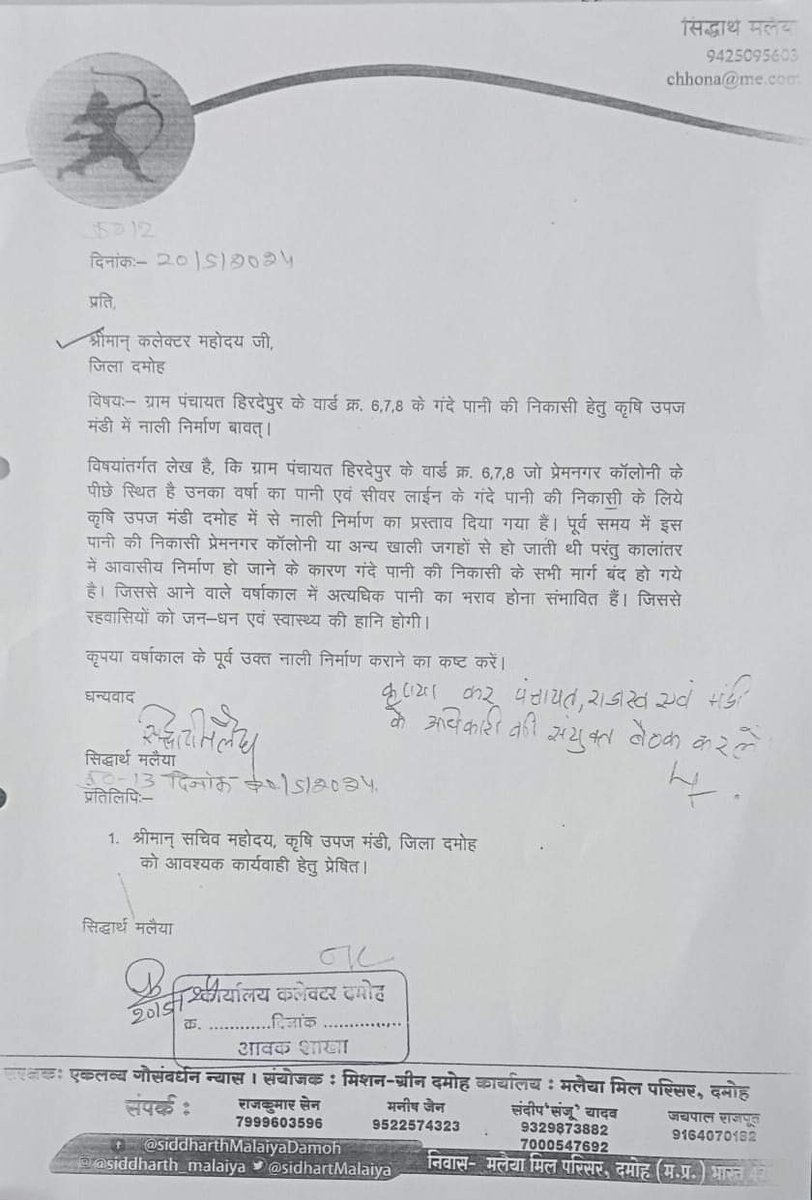 सिद्धार्थ मलैया
9425095603
chhona@me.com
5012
दिनांकः– 20/5/2024
प्रति,
श्रीमान् कलेक्टर महोदय जी,
जिला दमोह
विषयः– ग्राम पंचायत हिरदेपुर के वार्ड क्र. 6,7,8 के गंदे पानी की निकासी हेतु कृषि उपज
मंडी में नाली निर्माण बावत्।
विषयांतर्गत लेख है, कि ग्राम पंचायत हिरदेपुर के वार्ड क्र. 6,7,8 जो प्रेमनगर कॉलोनी के
पीछे स्थित है उनका वर्षा का पानी एवं सीवर लाईन के गंदे पानी की निकासी के लिये
कृषि उपज मंडी दमोह में से नाली निर्माण का प्रस्ताव दिया गया हैं। पूर्व समय में इस
पानी की निकासी प्रेमनगर कॉलोनी या अन्य खाली जगहों से हो जाती थी परंतु कालांतर
में आवासीय निर्माण हो जाने के कारण गंदे पानी की निकासी के सभी मार्ग बंद हो गये
है। जिससे आने वाले वर्षाकाल में अत्यधिक पानी का भराव होना संभावित हैं। जिससे
रहवासियों को जन–धन एवं स्वास्थ्य की हानि होगी।
कृपया वर्षाकाल के पूर्व उक्त नाली निर्माण कराने का कष्ट करें।
धन्यवाद
कृपया कर पंचायत, राजस्व एवं मंडी
के अधिकारी की संयुक्त बैठक करलें
सिद्धार्थ मलैया
सिद्धार्थ मलैया
50-13 दिनांक 20/5/2024
प्रतिलिपिः–
1. श्रीमान् सचिव महोदय, कृषि उपज मंडी, जिला दमोह
को आवश्यक कार्यवाही हेतु प्रेषित।
सिद्धार्थ मलैया
कार्यालय कलेक्टर दमोह
क्र. ............दिनांक ..............
आवक शाखा
20/5/24
संरक्षकः एकलव्य गौसंवर्धन न्यास । संयोजक : मिशन-ग्रीन दमोह कार्यालय : मलैया मिल परिसर, दमोह
संपर्क : राजकुमार सेन मनीष जैन संदीप'संजू' यादव जयपाल राजपूत
7999603596 9522574323 9329873882 9164070182
7000547692
@siddharthMalaiyaDamoh
@siddharth_malaiya @sidhartMalaiya निवास- मलैया मिल परिसर, दमोह (म.प्र.) भारत